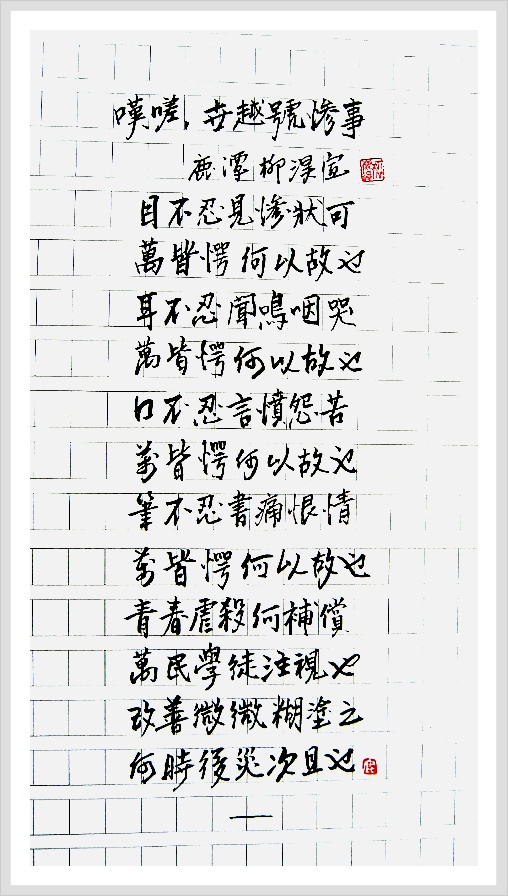 嘆嗟, 世越號慘事
鹿潭 柳濢宣
目不忍見慘狀可
萬皆愕何以故也
耳不忍聞嗚咽哭
萬皆愕何以故也
口不忍言憤怨苦
萬皆愕何以故也
筆不忍書痛恨情
万皆愕何以故也
青春虐殺何補償
萬民學徒注視也
改善微微糊塗之
何時後災次且也